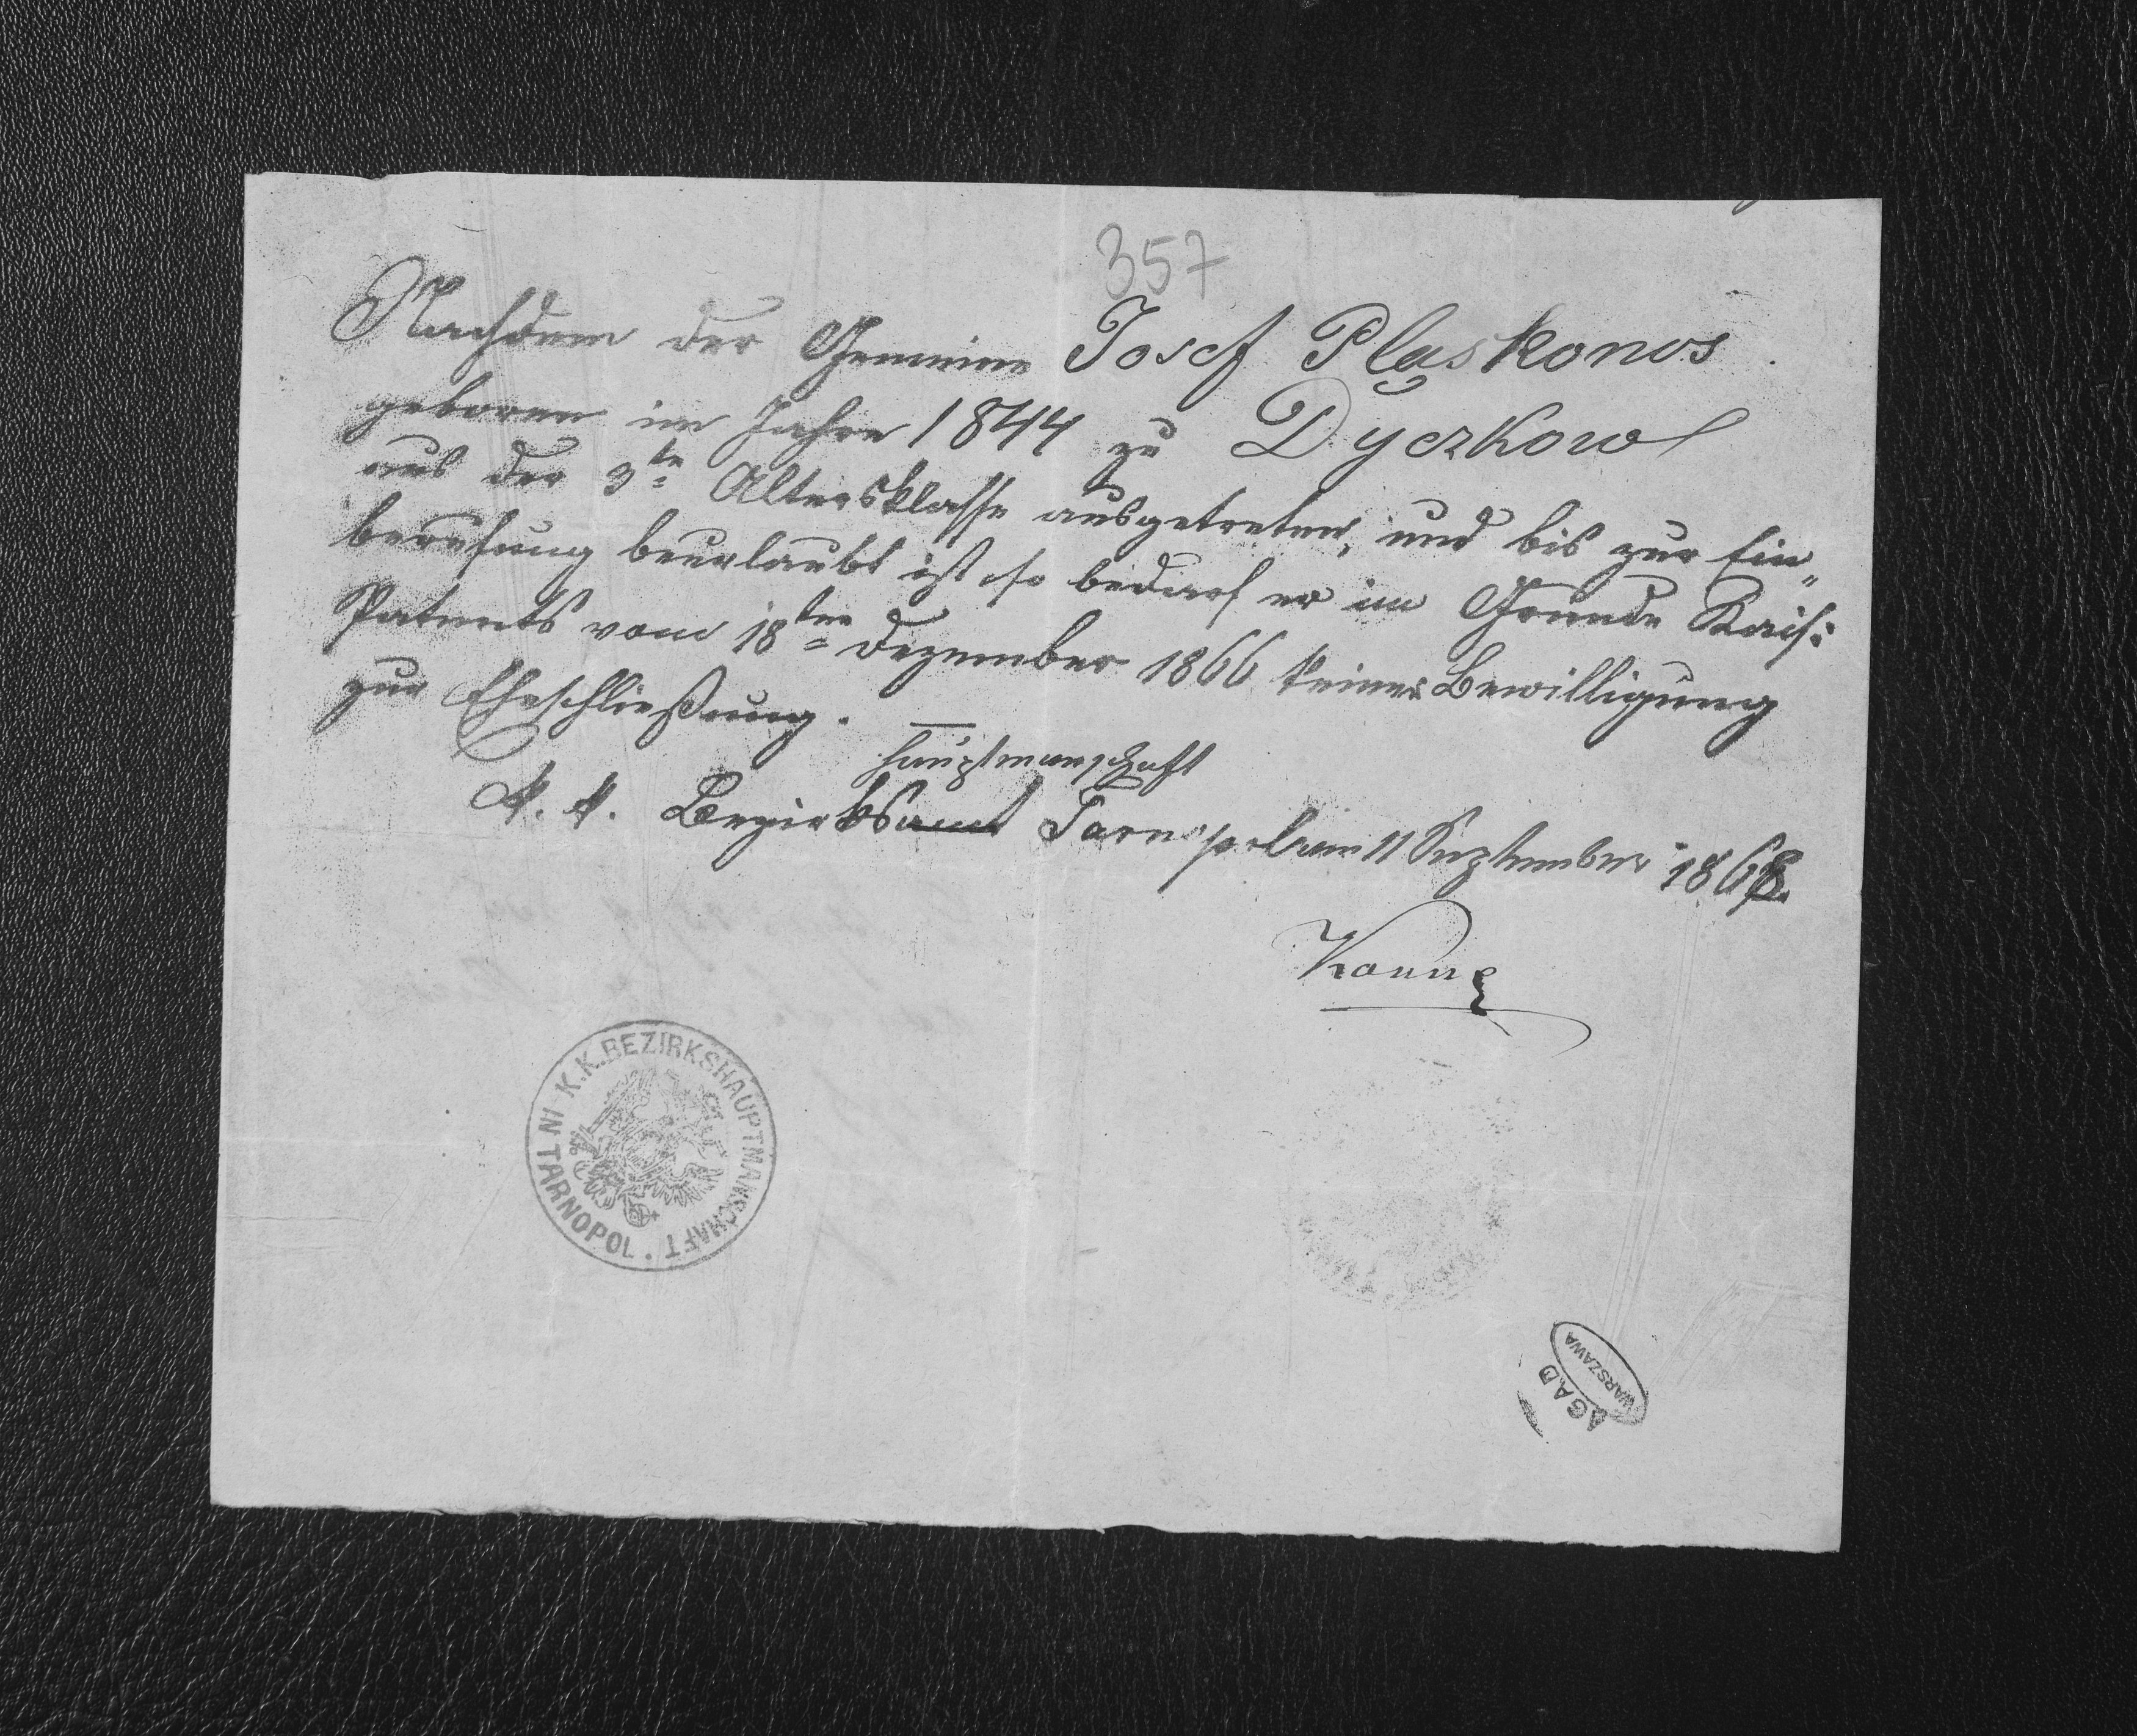 357
Nachdem der Gemeine Josef Pląskonos
geboren im Jahre 1844 zu Dyczkow
aus der 3te Altersklasse ausgetreten, und bis zur Ein„
berufung beurlaubt ist so bedarf er im Grunde Kais:
Patents vom 18ten Dezember 1866 keiner Bewilligung
zur Eheschließung. —
hauptmanschaft
K. K. Bezirksamt Tarnopol am 11 September 1868.
K.K. BEZIRKSHAUPTMANSCHAFT IN TARNOPOL
AGAD
WARSZAWA